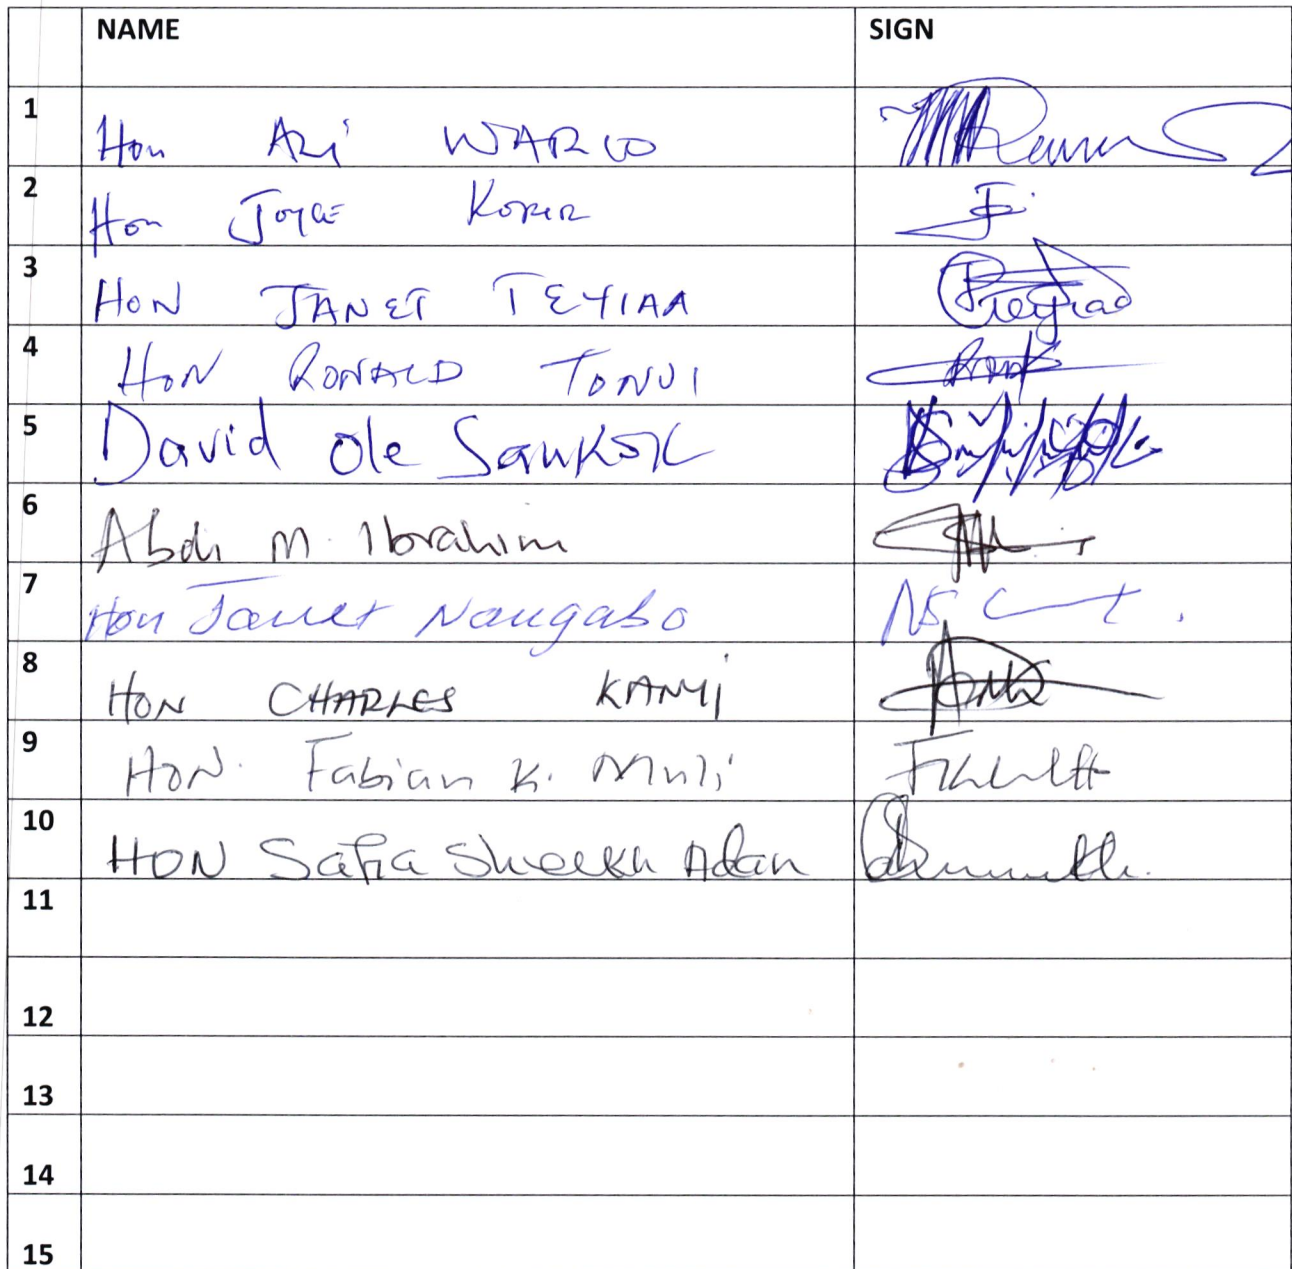 NAME SIGN
1 Hon Ali WARIO
2 Hon Joyce Korir
3 HON JANET TEYIAA
4 HON RONALD TONUI
5 David Ole Sankok
6 Abdi M. Ibrahim
7 Hon Janet Nangabo
8 HON CHARLES KANYI
9 HON. Fabian K. Muli
10 HON Safia Sheekh Adan
11
12
13
14
15